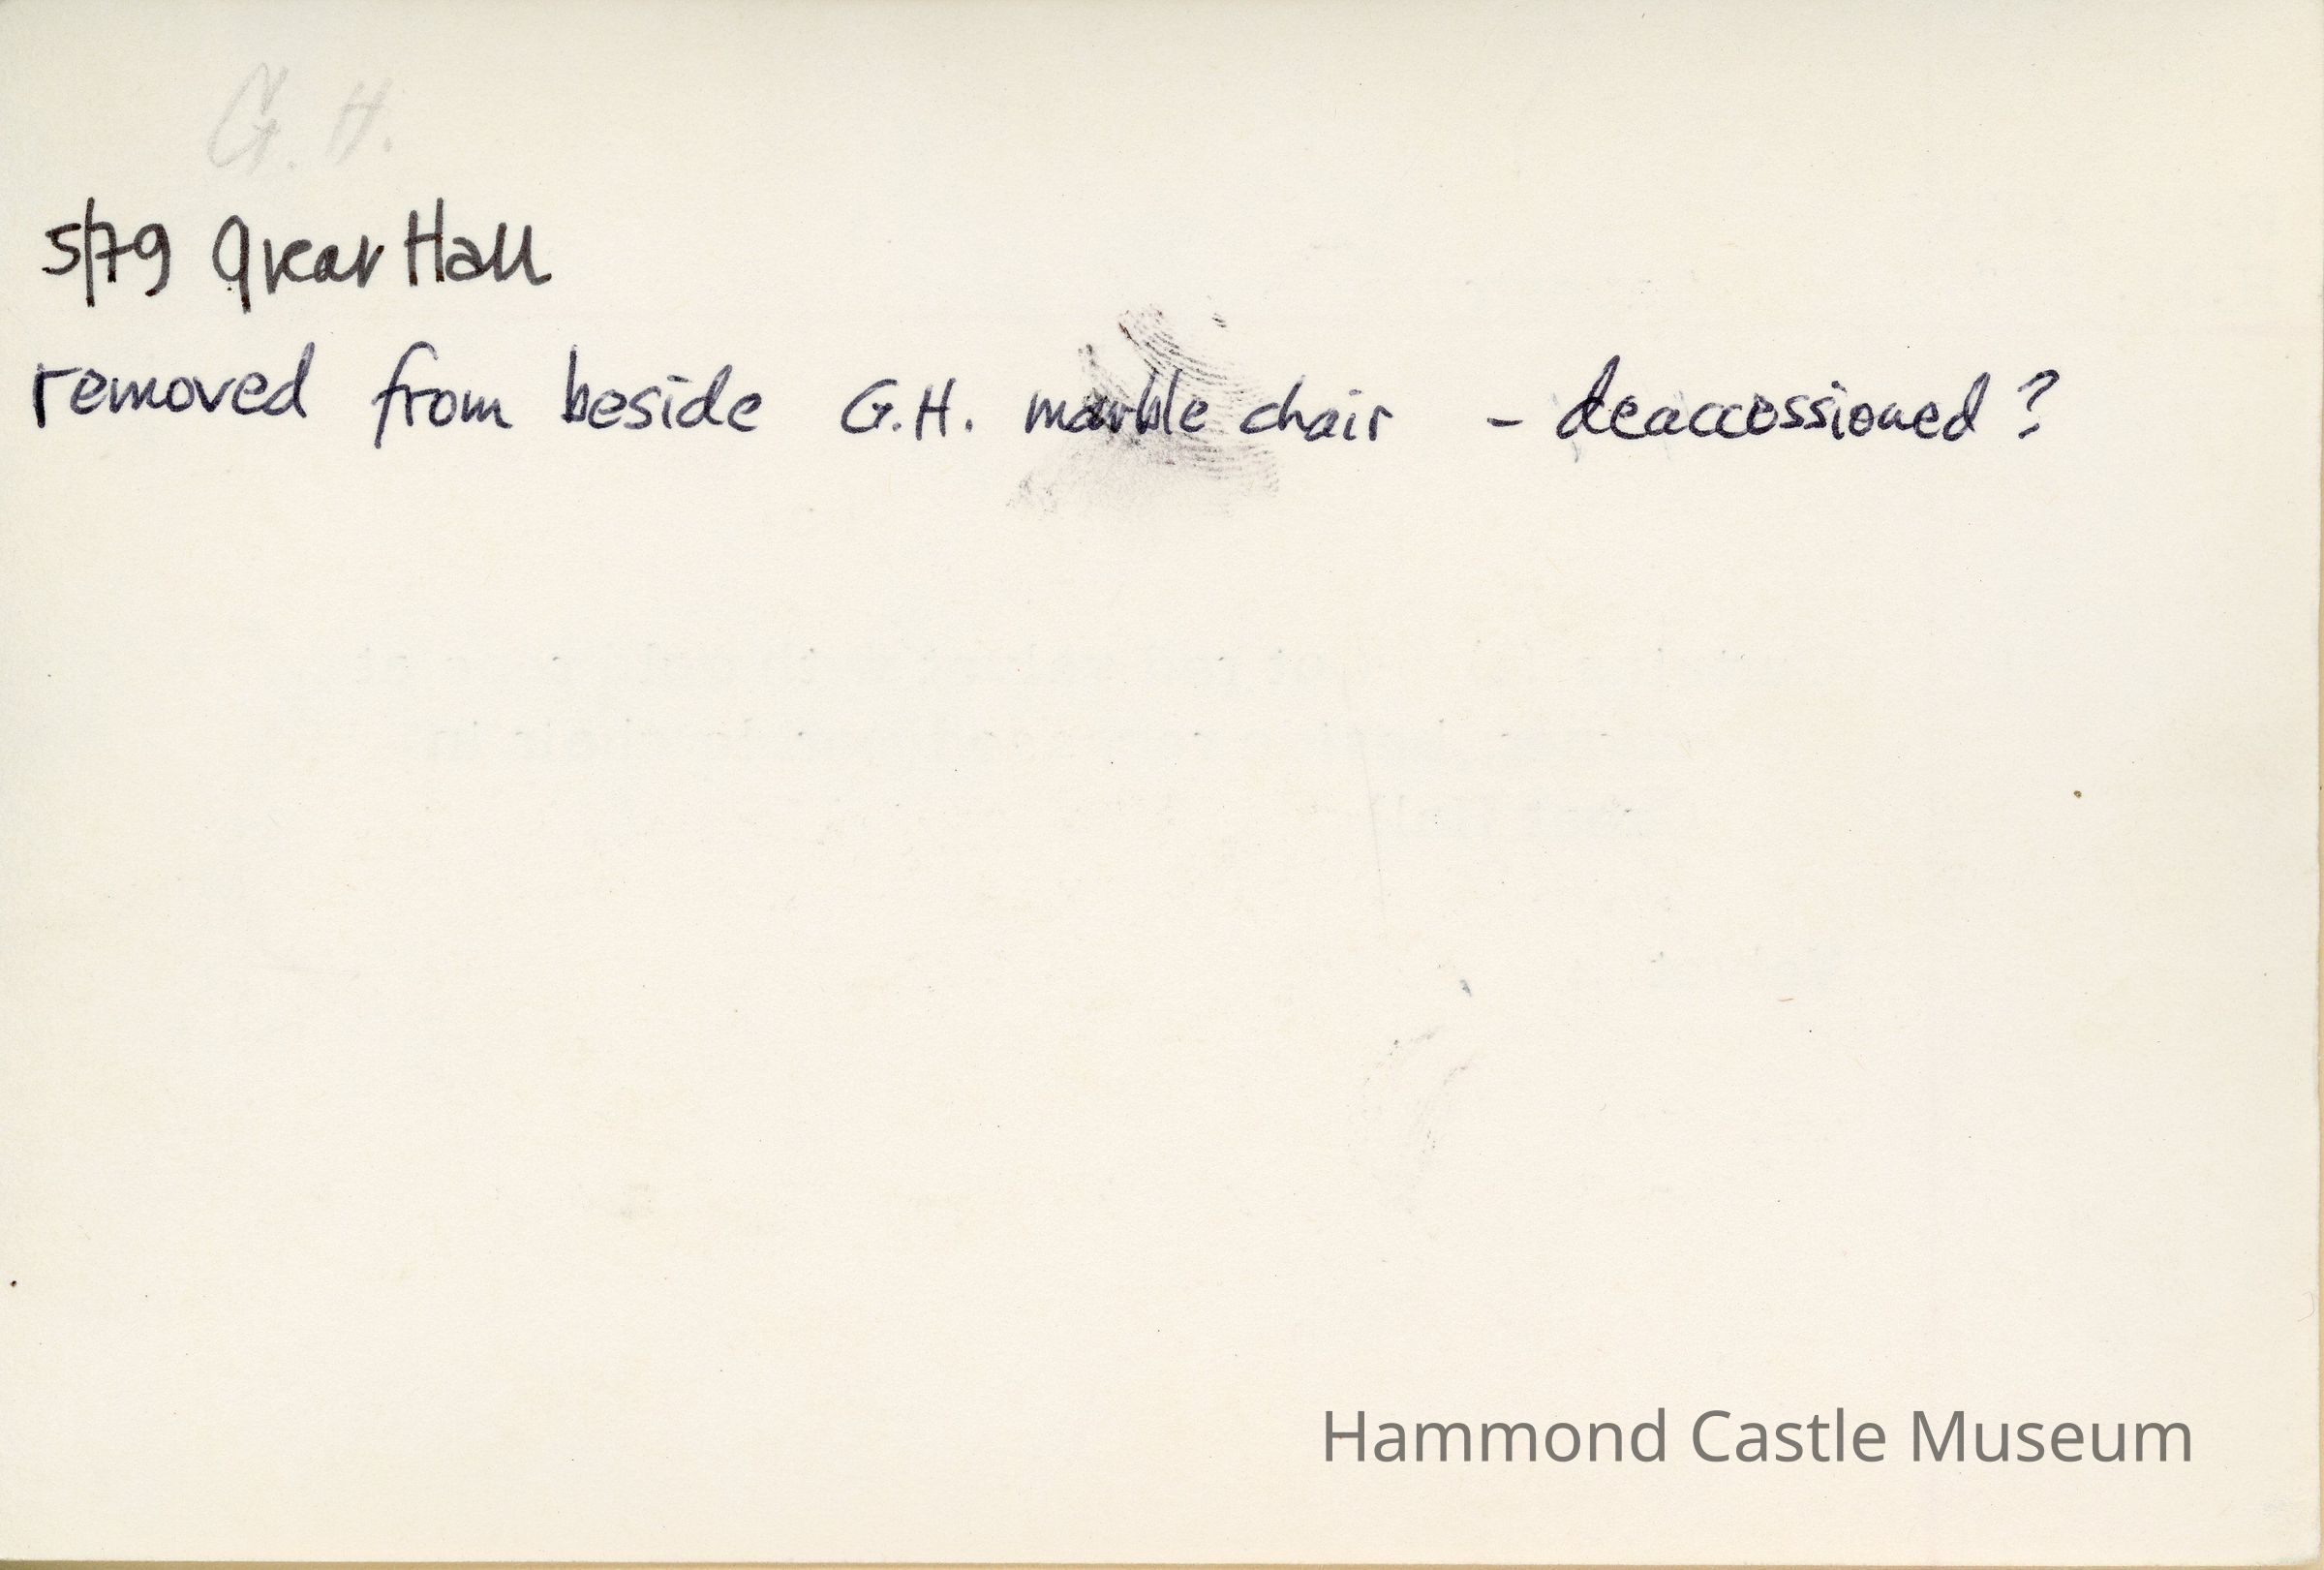 G. H.
5/79 Great Hall
removed from beside G.H. marble chair - deaccessioned?
Hammond Castle Museum